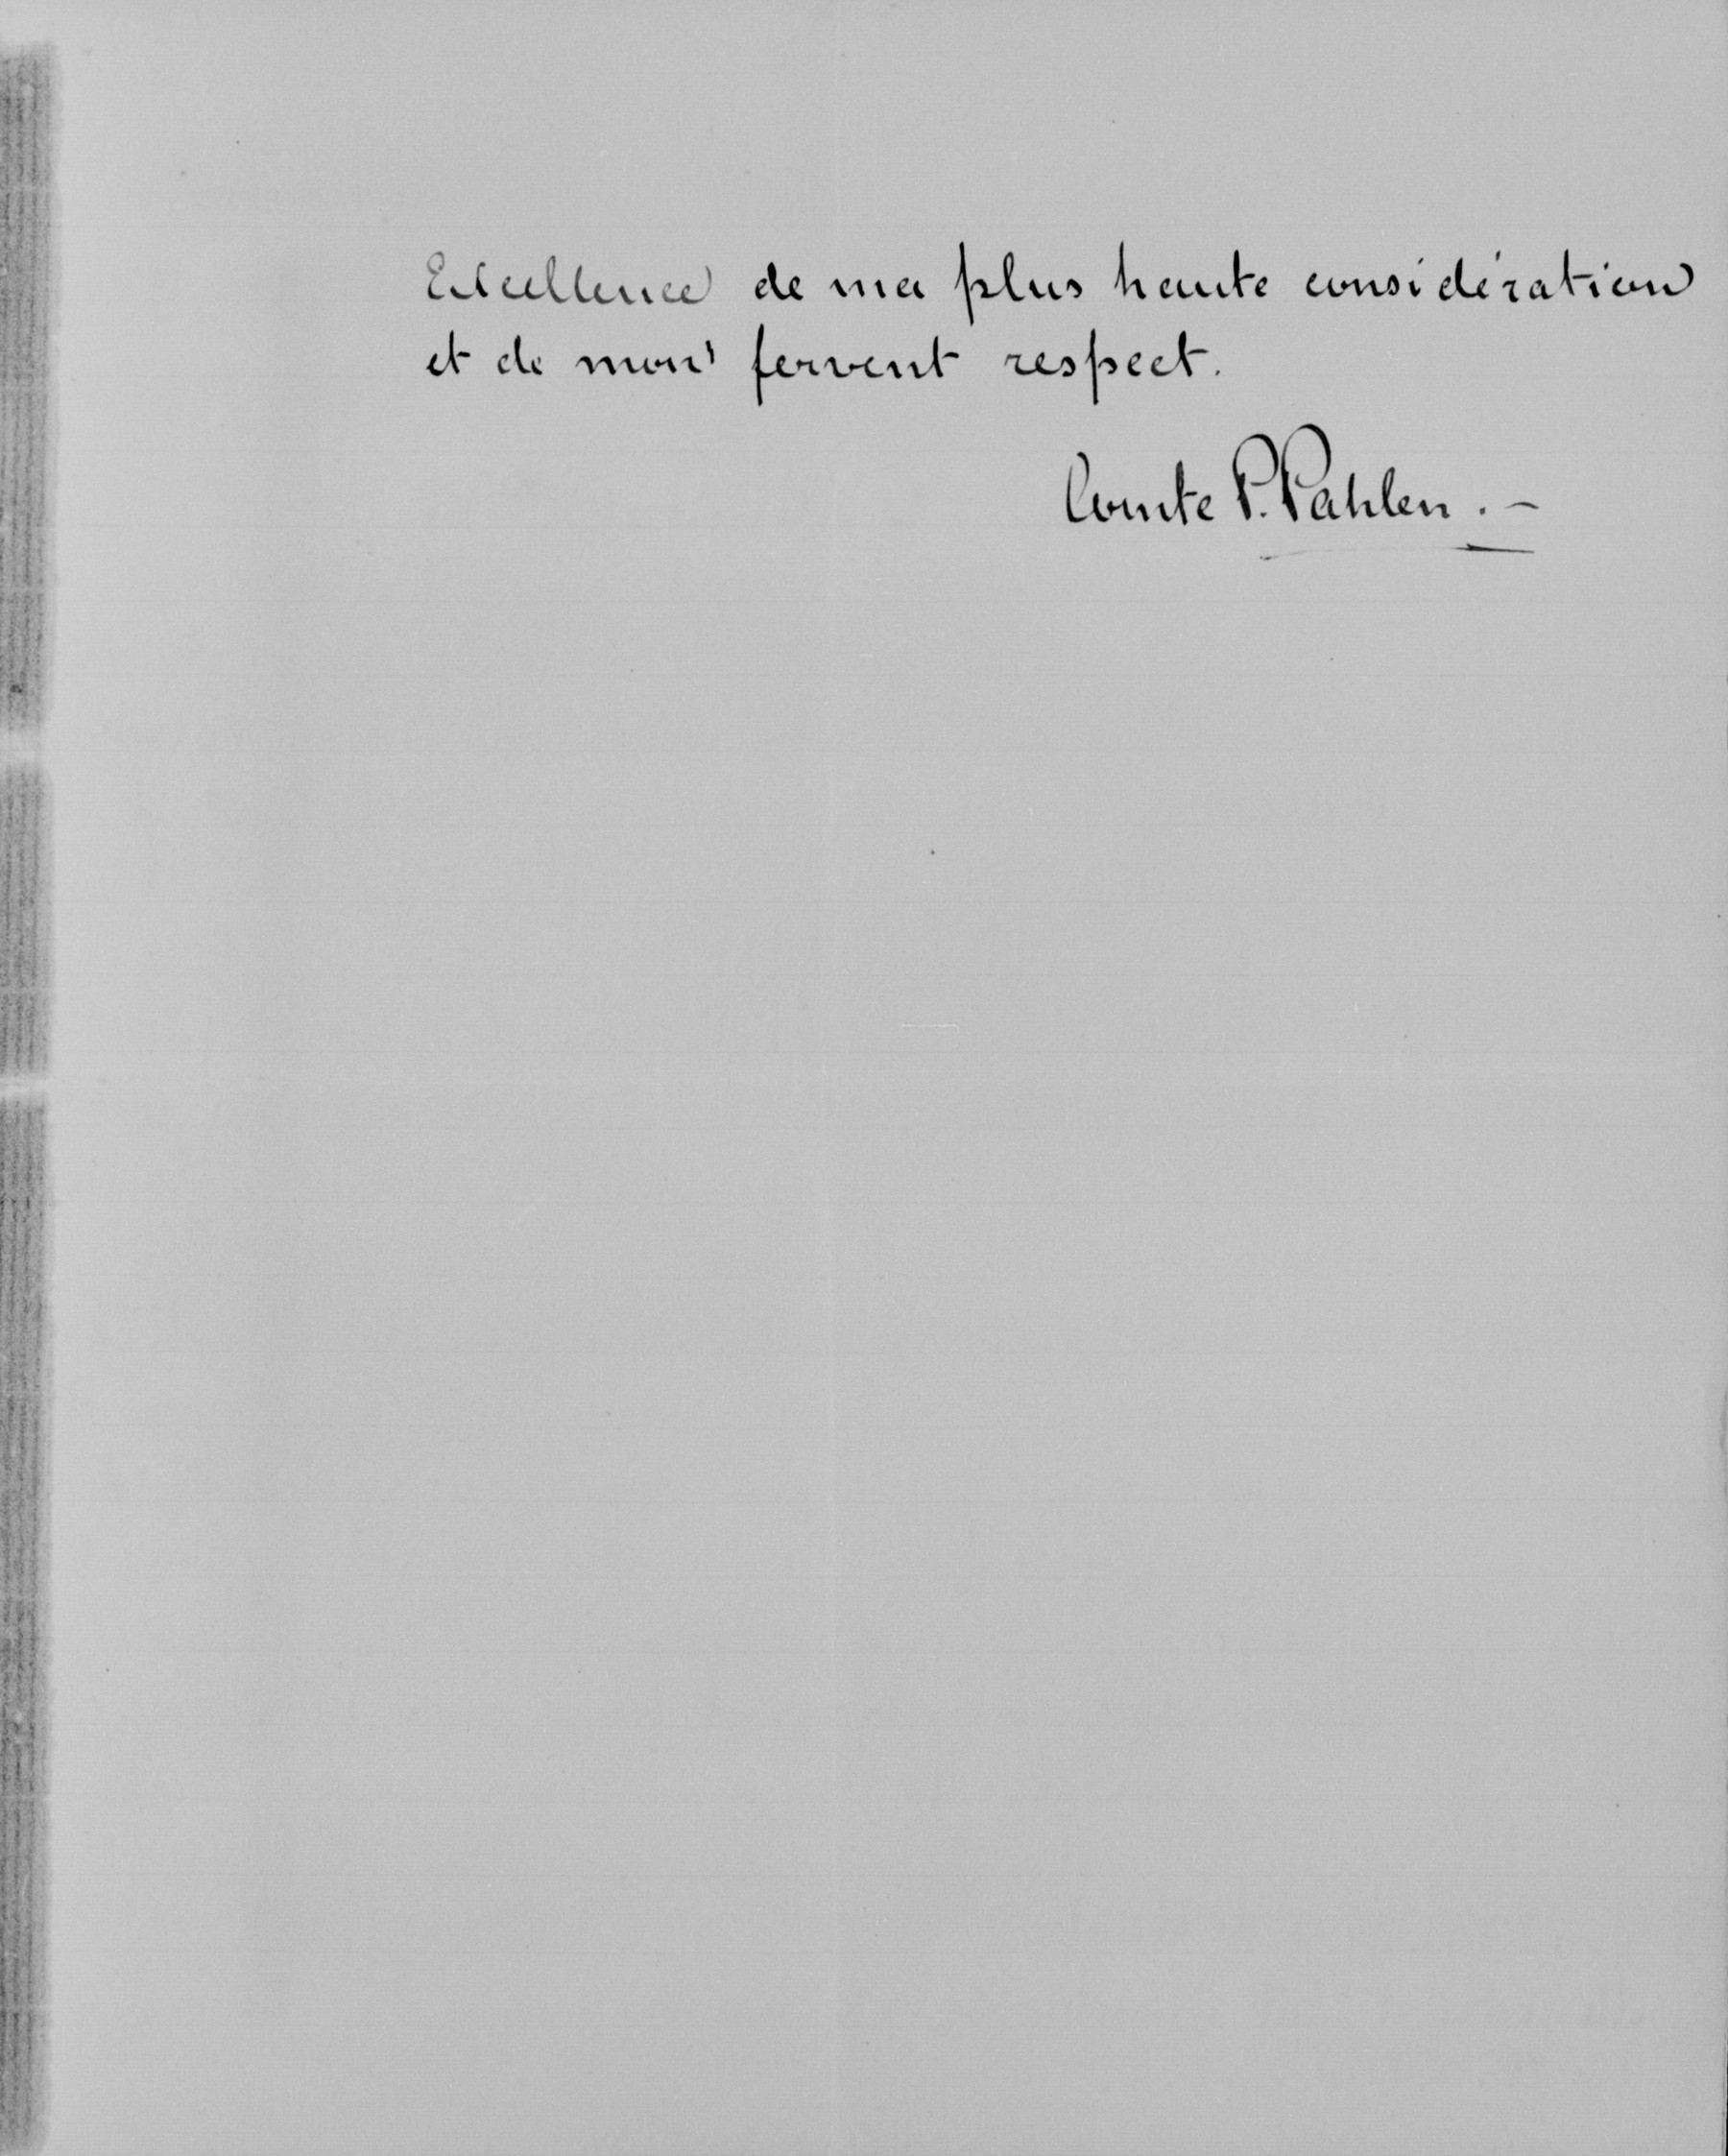 Excellence de ma plus haute considération
et de mon fervent respect.
Comte P. Pahlen . —